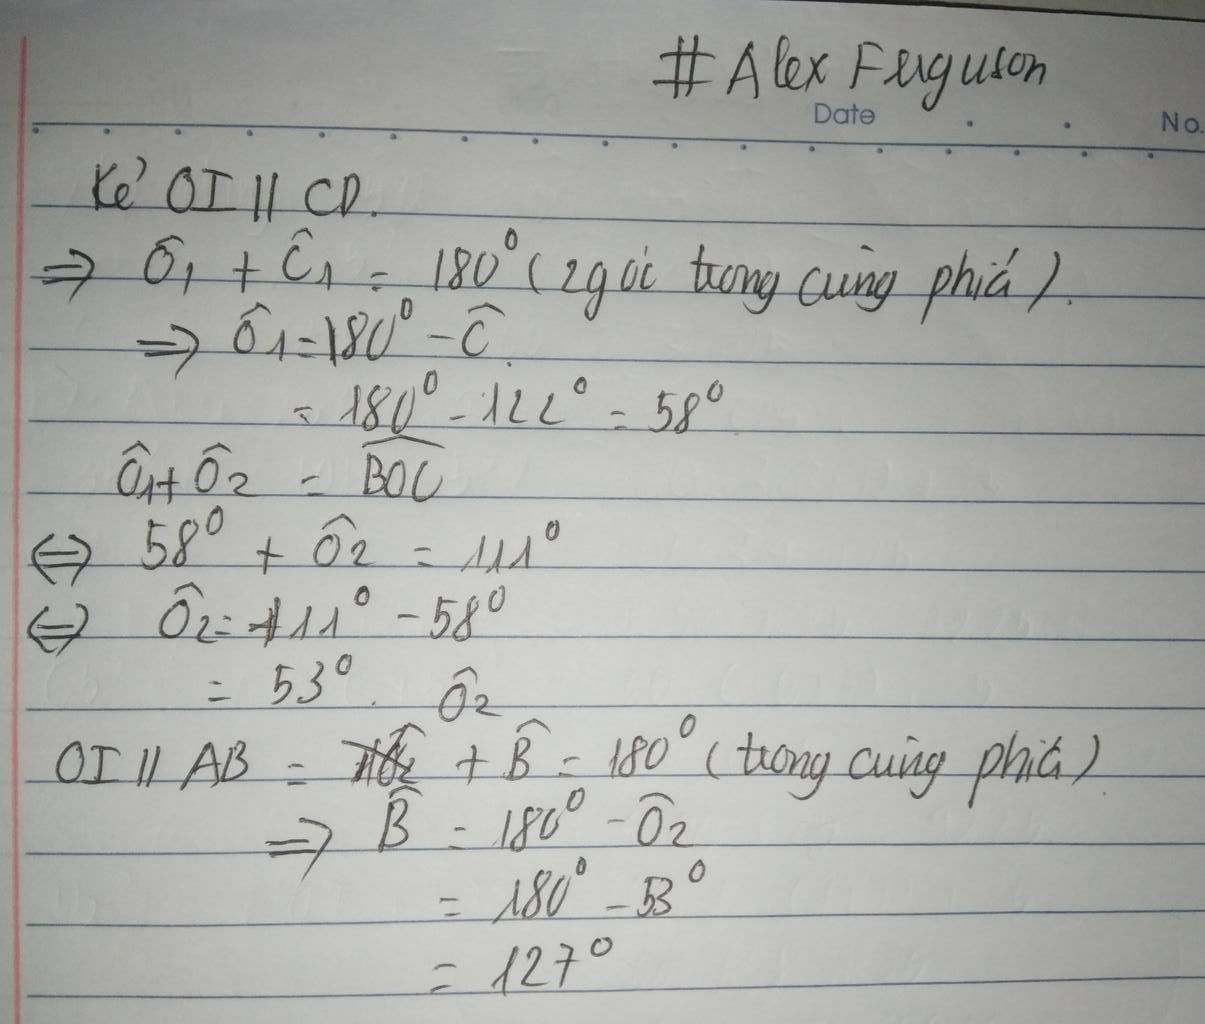 # Alex Ferguson
Date
No.
Kẻ OI // CD.
⇒ Ô1 + Ĉ1 = 180° (2 góc trong cùng phía).
⇒ Ô1 = 180° - Ĉ
= 180° - 122° = 58°
Ô1 + Ô2 = BOC
⇔ 58° + Ô2 = 111°
⇔ Ô2 = 111° - 58°
= 53°. Ô2
OI // AB = + B̂ = 180° (trong cùng phía)
⇒ B̂ = 180° - Ô2
= 180° - 53°
= 127°